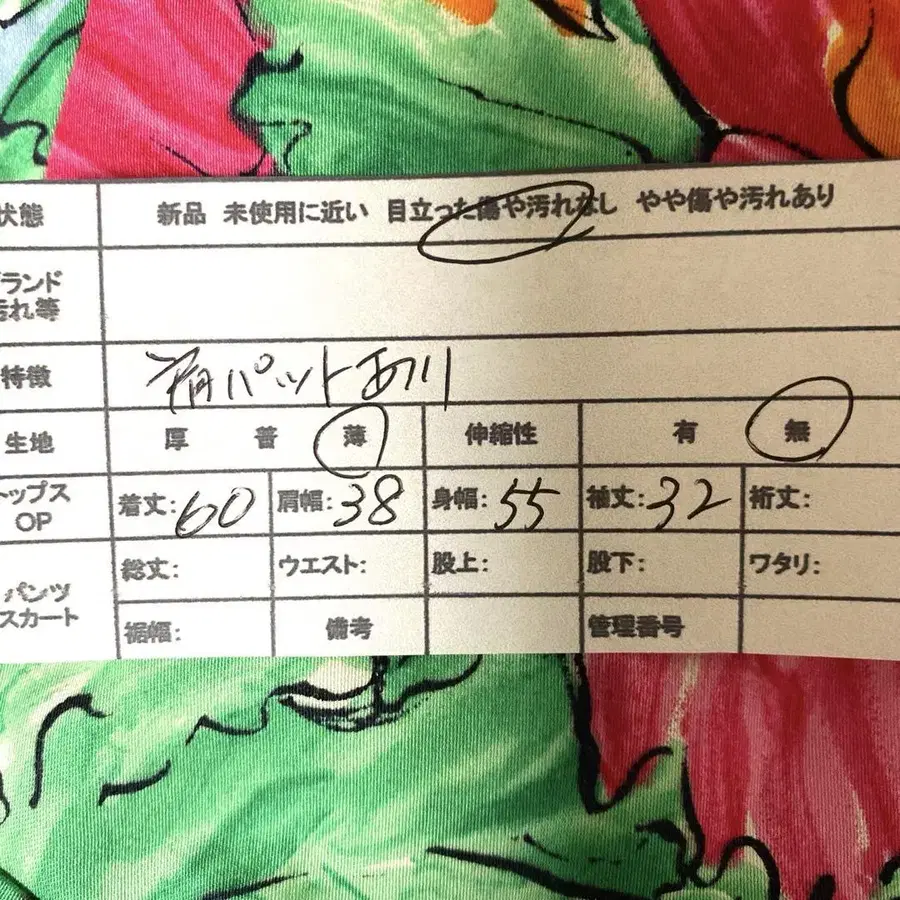 状態 新品 未使用に近い 目立った傷や汚れなし やや傷や汚れあり
ランド
汚れ等
特徴 肩パットあり
生地 厚 普 薄 伸縮性 有 無
トップス
OP 着丈:60 肩幅:38 身幅:55 袖丈:32 裄丈:
パンツ
スカート 総丈: ウエスト: 股上: 股下: ワタリ:
裾幅: 備考 管理番号